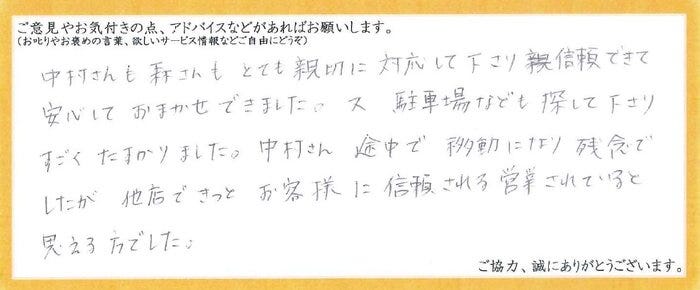 ご意見やお気付きの点、アドバイスなどがあればお願いします。
(お叱りやお褒めの言葉、欲しいサービス情報などご自由にどうぞ)
中村さんも森さんもとても親切に対応して下さり信頼できて
安心しておまかせできました。又 駐車場なども探して下さり
すごくたすかりました。中村さん 途中で移動になり残念で
したが 他店できっとお客様に信頼される営業されていると
思える方でした。
ご協力、誠にありがとうございます。